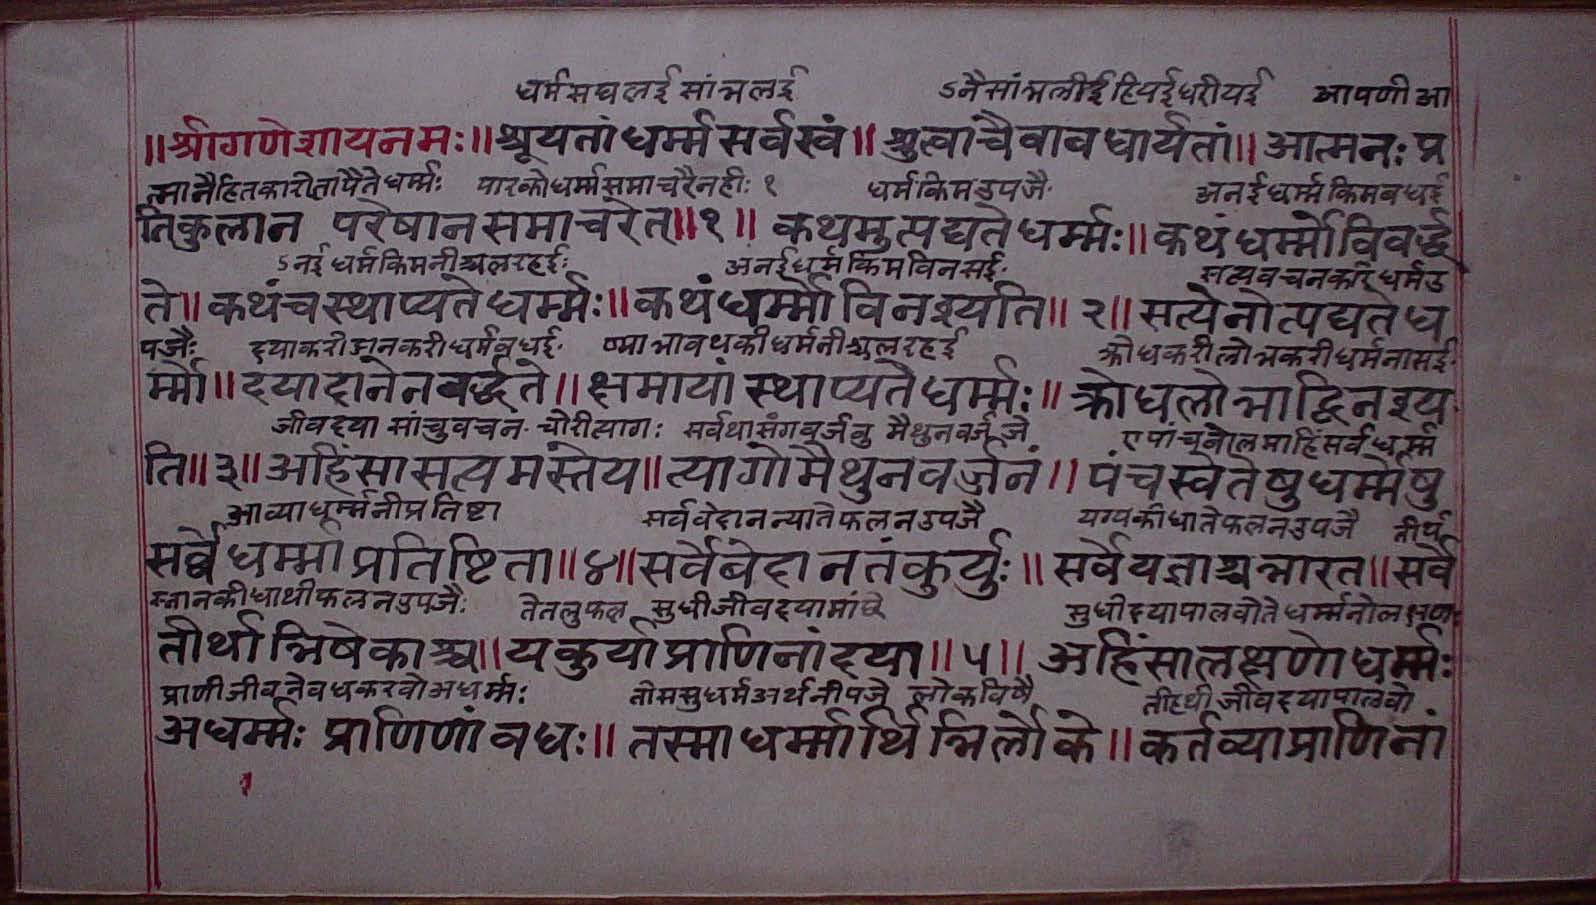 धर्म सघलई सांभलई ऽनै सांभलीई हियई धरीयई आपणी आ
॥श्रीगणेशायनमः॥श्रूयतां धर्म्म सर्वस्वं॥ श्रुत्वा चैवाव धार्यतां॥ आत्मनः प्र
त्मानैहितकारीतापैते धर्म्मः पारकोधर्म्मसमाचरैनहीः १ धर्म किम उपजै अनई धर्म्म किम बधई
तिकुलान परेषानसमाचरेत्॥१॥ कथमुत्पद्यते धर्म्मः॥ कथं धर्म्मो विवर्द्ध
ऽनई धर्म किम नीश्चल रहईः अनई धर्म किम विनसई सत्यवचनकरि धर्म उ
ते॥ कथंच स्थाप्यते धर्म्मः॥ कथं धर्म्मो विनश्यति॥ २॥ सत्येनोत्पद्यते ध
पजैः दयाकरी दानकरी धर्म बधई ष्मा भावथकी धर्म नीश्चल रहई क्रोधकरी लोभकरी धर्म नासई
र्म्मो॥ दयादानेन बर्द्धते॥ क्षमायां स्थाप्यते धर्म्मः॥ क्रोधलोभाद्विनश्य
जीवदया सांचुवचन चोरीत्यागः सर्वथासंगवर्जवु मैथुनवर्जजे ए पांचबोलमाहिं सर्व धर्म्म
ति॥३॥अहिंसा सत्यमस्तेय॥त्यागो मैथुनवर्जनं॥ पंचस्वेतेषु धर्म्मेषु
आव्या धर्म्मनी प्रतिष्टा सर्व वेदानन्याते फल न उपजै यग्यकीधाते फल न उपजै तीर्थ
सर्व्वे धर्म्मा प्रतिष्टिता॥४॥सर्वे बेदा न तं कुर्युः॥ सर्वे यज्ञाश्च भारत॥सर्वे
स्नानकीधाथी फल न उपजैः तेतलुफल सुधीजीवदयामां छे सुधीदयापालवीतै धर्म्मनोलक्षणः
तीर्थाभिषेकाश्च॥यकुर्या प्राणिनां दया॥५॥ अहिंसालक्षणो धर्म्मः
प्राणीजीवनेवधकरवोअधर्म्मः तीमसुधर्मअर्थनीपजे लोकविषै तीहथी जीवदयापालवी
अधर्म्मः प्राणिणां वधः॥ तस्मा धर्म्मार्थिभिर्लोके॥ कर्तव्याप्राणिनां